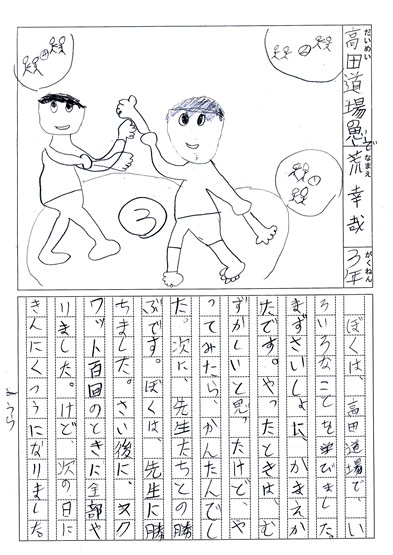 だいめい
高田道場思いで
なまえ
荒幸哉
がくねん
3年
④
②
①
③
ぼくは、高田道場で、い
ろいろなことを学びました。
まずさいしょに、かまえか
たです。やったときは、む
ずかしいと思ったけど、や
ってみたら、かんたんでし
た。次に、先生たちとの勝
ぶです。ぼくは、先生に勝
ちました。さい後に、スク
ワット百回のときに全部や
りました。けど、次の日に
きんにくつうになりました。
うら